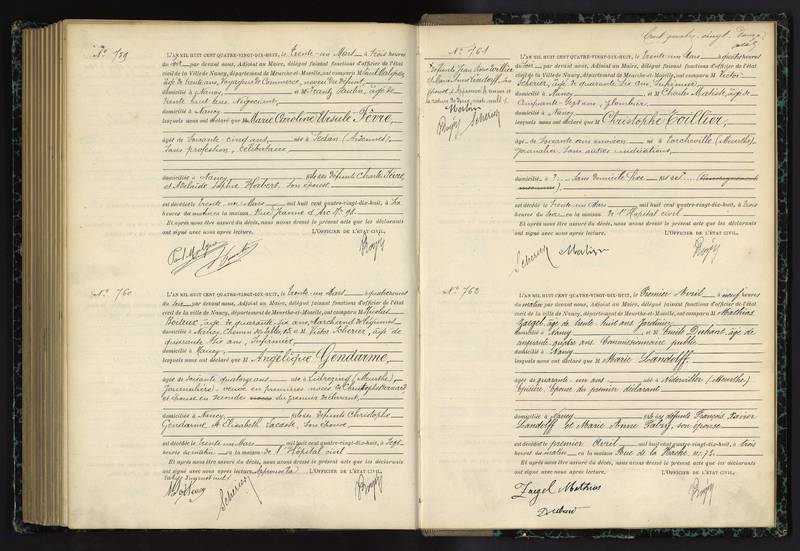 N.º 759
L'AN MIL HUIT CENT QUATRE-VINGT-DIX-HUIT, le trente-un Mars à trois heures
du soir par devant nous, Adjoint au Maire, délégué faisant fonctions d'officier de l'état
civil de la Ville de Nancy, département de Meurthe-et-Moselle, ont comparu M Paul
âgé de trente ans, Voyageur de Commerce, neveu du défunt
domicilié à Nancy et M Frantz Paulin, âgé de
trente huit ans Négociant
domicilié à Nancy
lesquels nous ont déclaré que M Marie Caroline Ursule Fèvre,
âgée de Soixante-cinq ans née à Sedan (Ardennes),
Sans profession, Célibataire
domiciliée à Nancy fille des défunts Charles Fèvre,
et Adélaïde Sophie Herbert, Son épouse
est décédée le trente un Mars mil huit cent quatre-vingt-dix-huit, à Six
heures du matin en la maison Rue Jeanne d'Arc N.º 98.
Et après nous être assuré du décès, nous avons dressé le présent acte que les déclarants
ont signé avec nous après lecture. L'OFFICIER DE L'ÉTAT CIVIL,
N.º 760
L'AN MIL HUIT CENT QUATRE-VINGT-DIX-HUIT, le trente-un Mars à quatre heures
du soir par devant nous, Adjoint au Maire, délégué faisant fonctions d'officier de l'état
civil de la ville de Nancy, département de Meurthe-et-Moselle, ont comparu M Nicolas
âgé de quarante-six ans, Marchand de légumes
domicilié à Nancy, et M Victor Scherier, âgé de
quarante six ans, Infirmier
domicilié à Nancy,
lesquels nous ont déclaré que M Angélique Gendarme,
âgée de Soixante quatorze ans née à Lidrezing (Meurthe),
Journalière, veuve en premières noces de Christophe
et épouse en secondes noces du premier déclarant,
domiciliée à Nancy fille des défunts Christophe
Gendarme, et Elisabeth Lacoste, Son épouse
est décédée le trente un Mars mil huit cent quatre-vingt-dix-huit, à Sept
heures du matin en la maison de l'Hôpital civil
Et après nous être assuré du décès, nous avons dressé le présent acte que les déclarants
ont signé avec nous après lecture. L'OFFICIER DE L'ÉTAT CIVIL,
Scherier
Cent quatre-vingt-
N.º 761
L'AN MIL HUIT CENT QUATRE-VINGT-DIX-HUIT, le trente-un Mars à quatre heures
du soir par devant nous, Adjoint au Maire, délégué faisant fonctions d'officier de l'état
civil de la Ville de Nancy, département de Meurthe-et-Moselle, ont comparu M Victor
Scherier, âgé de quarante six ans, Infirmier,
domicilié à Nancy et M Charles
Cinquante sept ans, plombier,
domicilié à Nancy
lesquels nous ont déclaré que M Christophe Toillier,
âgé de Soixante ans environ né à Torcheville (Meurthe),
Journalier, Sans autres indications,
domicilié à ? Sans domicile fixe
est décédé le trente-un Mars mil huit cent quatre-vingt-dix-huit, à trois
heures du soir, en la maison de l'Hôpital civil
Et après nous être assuré du décès, nous avons dressé le présent acte que les déclarants
ont signé avec nous après lecture. L'OFFICIER DE L'ÉTAT CIVIL,
Scherier
N.º 762
L'AN MIL HUIT CENT QUATRE-VINGT-DIX-HUIT, le Premier Avril à neuf heures
du matin par devant nous, Adjoint au Maire, délégué faisant fonctions d'officier de l'état
civil de la ville de Nancy, département de Meurthe-et-Moselle, ont comparu M Mathias
Zaegel, âgé de trente huit ans Jardinier
domicilié à Nancy et M Emile Duhaut, âgé de
cinquante quatre ans Commissionnaire public
domicilié à Nancy
lesquels nous ont déclaré que M Marie Landelff
âgée de quarante un ans née à Niderviller (Meurthe)
Epicière, Epouse du premier déclarant
domiciliée à Nancy fille des défunts François Xavier
Landelff et Marie Anne Fabry, son épouse
est décédée le premier Avril mil huit cent quatre-vingt-dix-huit, à trois
heures du matin en la maison Rue de la Hache, n.º 73.
Et après nous être assuré du décès, nous avons dressé le présent acte que les déclarants
ont signé avec nous après lecture. L'OFFICIER DE L'ÉTAT CIVIL,
Zaegel Mathias